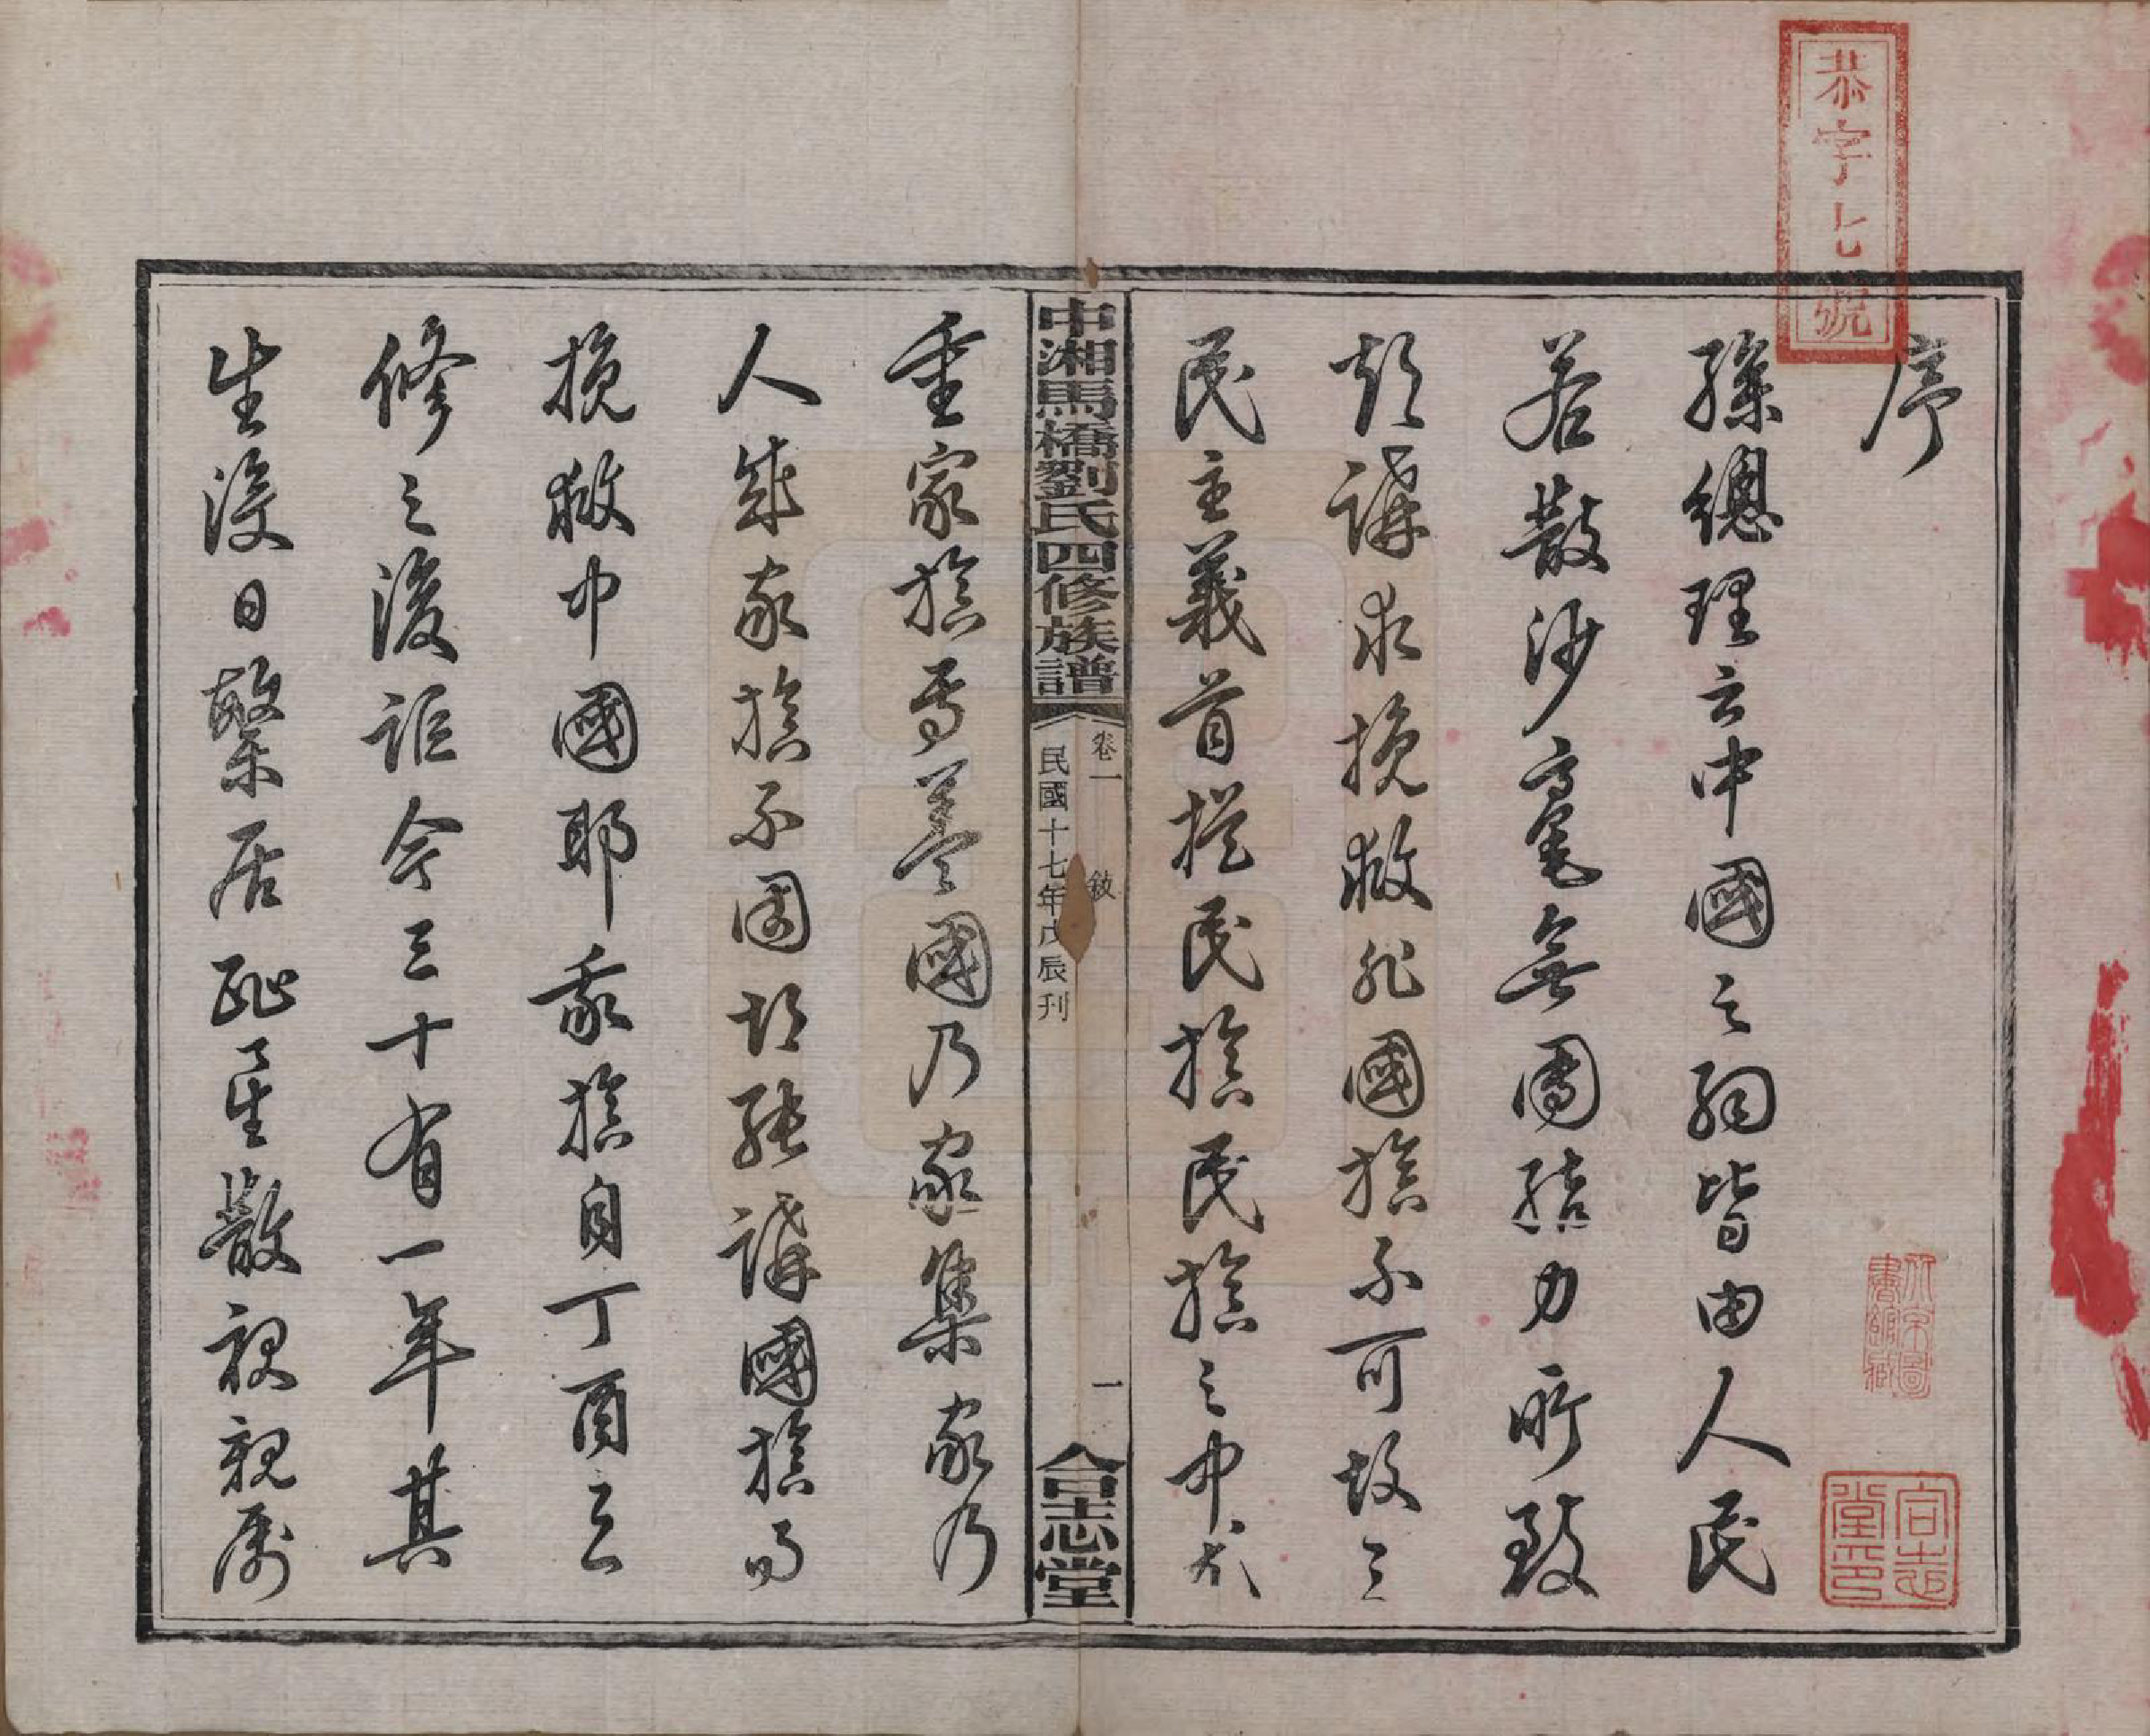 恭字七號
序
孫總理云中國之弱皆由人民
若散沙毫無團結力所致
欲講求挽救非國族不可故三
民主義首提民族民族之中尤
中湘馬橋劉氏四修族譜
卷一 敘 一
民國十七年戊辰刊
合志堂
重家族焉蓋國乃家集家乃
人成家族不固胡能講國族而
挽救中國耶我族自丁酉三
修之後距今三十有一年其
生浸日繁居趾星散視親屬
合志堂印